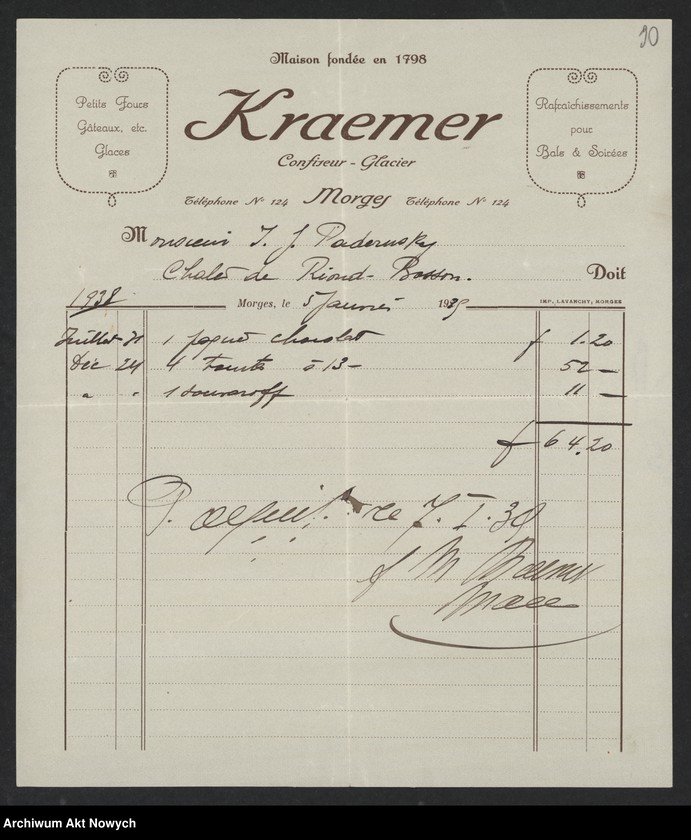 90
Maison fondée en 1798
Petits Fours
Gâteaux, etc.
Glaces
Kraemer
Confiseur - Glacier
Rafraîchissements
pour
Bals & Soirées
Téléphone No 124 Morges Téléphone No 124
Monsieur I. J. Paderewsky
Chalet de Riond-Bosson. Doit
1938 Morges, le 5 Janvier 1939 IMP. LAVANCHY, MORGES
Juillet 31 1 paquet chocolat f 1.20
Déc 24 4 à 13- 52 —
" " 1 souwaroff 11 —
f 64.20
P. acquit. ce 7. I. 39